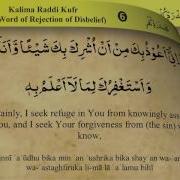 Kalima Raddi Kufr
Word of Rejection of Disbelief)
6
اِنِّیْۤ اَعُوْذُ بِكَ مِنْ اَنْ اُشْرِكَ بِكَ شَيْئًا وَّاَنَا
وَاَسْتَغْفِرُكَ لِمَا لَاۤ اَعْلَمُ بِهٖ
ainly, I seek refuge in You from knowingly asso
ou, and I seek Your forgiveness from (the sin)
know,
innī a ūdhu bika min an ushrika bika shay an wa-an
wa-astaghfiruka li-mā lā a lamu bihī